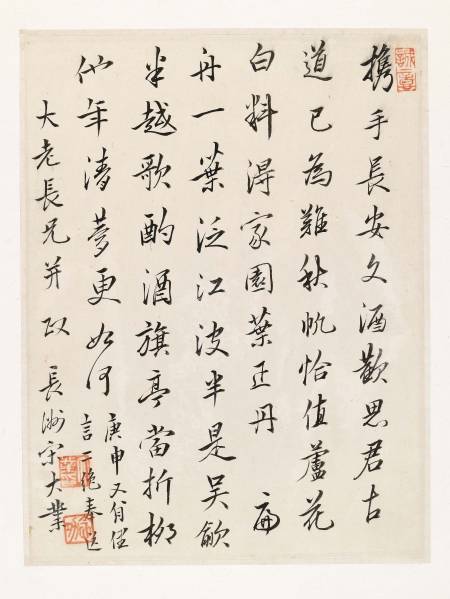 携手長安文酒歡思君古
道已為難秋帆恰值蘆花
白料得家園葉正丹 扁
舟一葉泛江波半是吳歈
半越歌酌酒旗亭當折柳
他年清夢更如何
庚申又月俚
言二絕奉送
大老長兄并政 長洲宋大業